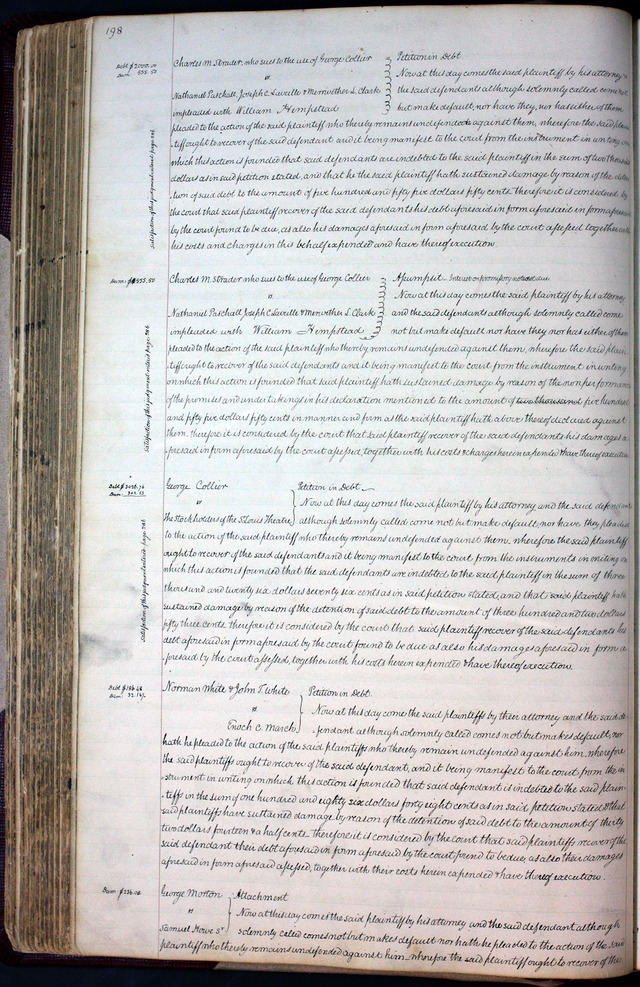 198
Debt $2000.00
Dam. 555.50
Charles M. Strader, who sues to the use of George Collier
Petition in Debt
vs
Now at this day comes the said plaintiff by his attorney
Nathaniel Paschall, Joseph C. Laville & Merwether L. Clark
the said defendants although solemnly called come not
impleaded with William Hempstead
but make default, nor have they, nor has either of them
pleaded to the action of the said plaintiff who thereby remains undefended against them, wherefore the said plain
tiff ought to recover of the said defendant and it being manifest to the court from the instrument in writing on
which this action is founded that said defendants are indebted to the said plaintiff in the sum of two thousand
dollars as in said petition stated, and that he the said plaintiff hath sustained damage by reason of the deten
tion of said debt to the amount of five hundred and fifty five dollars fifty cents. therefore it is considered by
the court that said plaintiff recover of the said defendants his debt aforesaid in form aforesaid in form aforesaid
by the court found to be due, as also his damages aforesaid in form aforesaid by the court assessed together with
his costs and charges in this behalf expended and have thereof execution.
Satisfaction of this judgment entered page
Dam: $555.50
Charles M. Strader who sues to the use of George Collier
Assumpsit
vs
Now at this day comes the said plaintiff by his attorney
Nathaniel Paschall, Joseph C. Laville & Merwether L. Clark
and the said defendants although solemnly called come
impleaded with William Hempstead
not but make default nor have they nor has either of them
pleaded to the action of the said plaintiff who thereby remains undefended against them, wherefore the said plain
tiff ought to recover of the said defendants and it being manifest to the court from the instrument in writing
on which this action is founded that said plaintiff hath sustained damage by reason of the non performance
of the promises and undertakings in his declaration mentioned to the amount of two thousand five hundred
and fifty five dollars fifty cents in manner and form as the said plaintiff hath above thereof declared against
them. therefore it is considered by the court that said plaintiff recover of the said defendants his damages a
foresaid in form aforesaid by the court assessed, together with his costs & charges herein expended & have thereof execution
Satisfaction of this judgment entered page
Debt $3026.76
Dam. 302.53
George Collier
Petition in Debt
vs
Now at this day comes the said plaintiff by his attorney and the said defendants
The Stockholders of the St Louis Theatre
although solemnly called come not but make default, nor have they pleaded
to the action of the said plaintiff who thereby remains undefended against them. wherefore the said plaintiff
ought to recover of the said defendants and it being manifest to the court from the instruments in writing on
which this action is founded that the said defendants are indebted to the said plaintiff in the sum of three
thousand and twenty six dollars seventy six cents as in said petition stated, and that said plaintiff hath
sustained damage by reason of the detention of said debt to the amount of three hundred and two dollars
fifty three cents. therefore it is considered by the court that said plaintiff recover of the said defendants his
debt aforesaid in form aforesaid by the court found to be due as also his damages aforesaid in form a
foresaid by the court assessed, together with his costs herein expended & have thereof execution.
Satisfaction of this judgment entered page
Debt $186.48
Dam. 32.14½
Norman White & John T. White
Petition in Debt
vs
Now at this day come the said plaintiffs by their attorney and the said de
Enoch C. March
fendant although solemnly called comes not but makes default, nor
hath he pleaded to the action of the said plaintiffs who thereby remain undefended against him, wherefore
the said plaintiffs ought to recover of the said defendant, and it being manifest to the court from the in
strument in writing on which this action is founded that said defendant is indebted to the said plain
tiffs in the sum of one hundred and eighty six dollars forty eight cents as in said petition stated & that
said plaintiffs have sustained damage by reason of the detention of said debt to the amount of thirty
two dollars fourteen & a half cents. therefore it is considered by the court that said plaintiffs recover of the
said defendant their debt aforesaid in form aforesaid by the court found to be due, as also their damages
aforesaid in form aforesaid assessed, together with their costs herein expended & have thereof execution.
George Morton
Attachment
vs
Now at this day comes the said plaintiff by his attorney and the said defendant although
Samuel Howe Sr
solemnly called comes not but makes default nor hath he pleaded to the action of the said
plaintiff who thereby remains undefended against him, wherefore the said plaintiff ought to recover of the